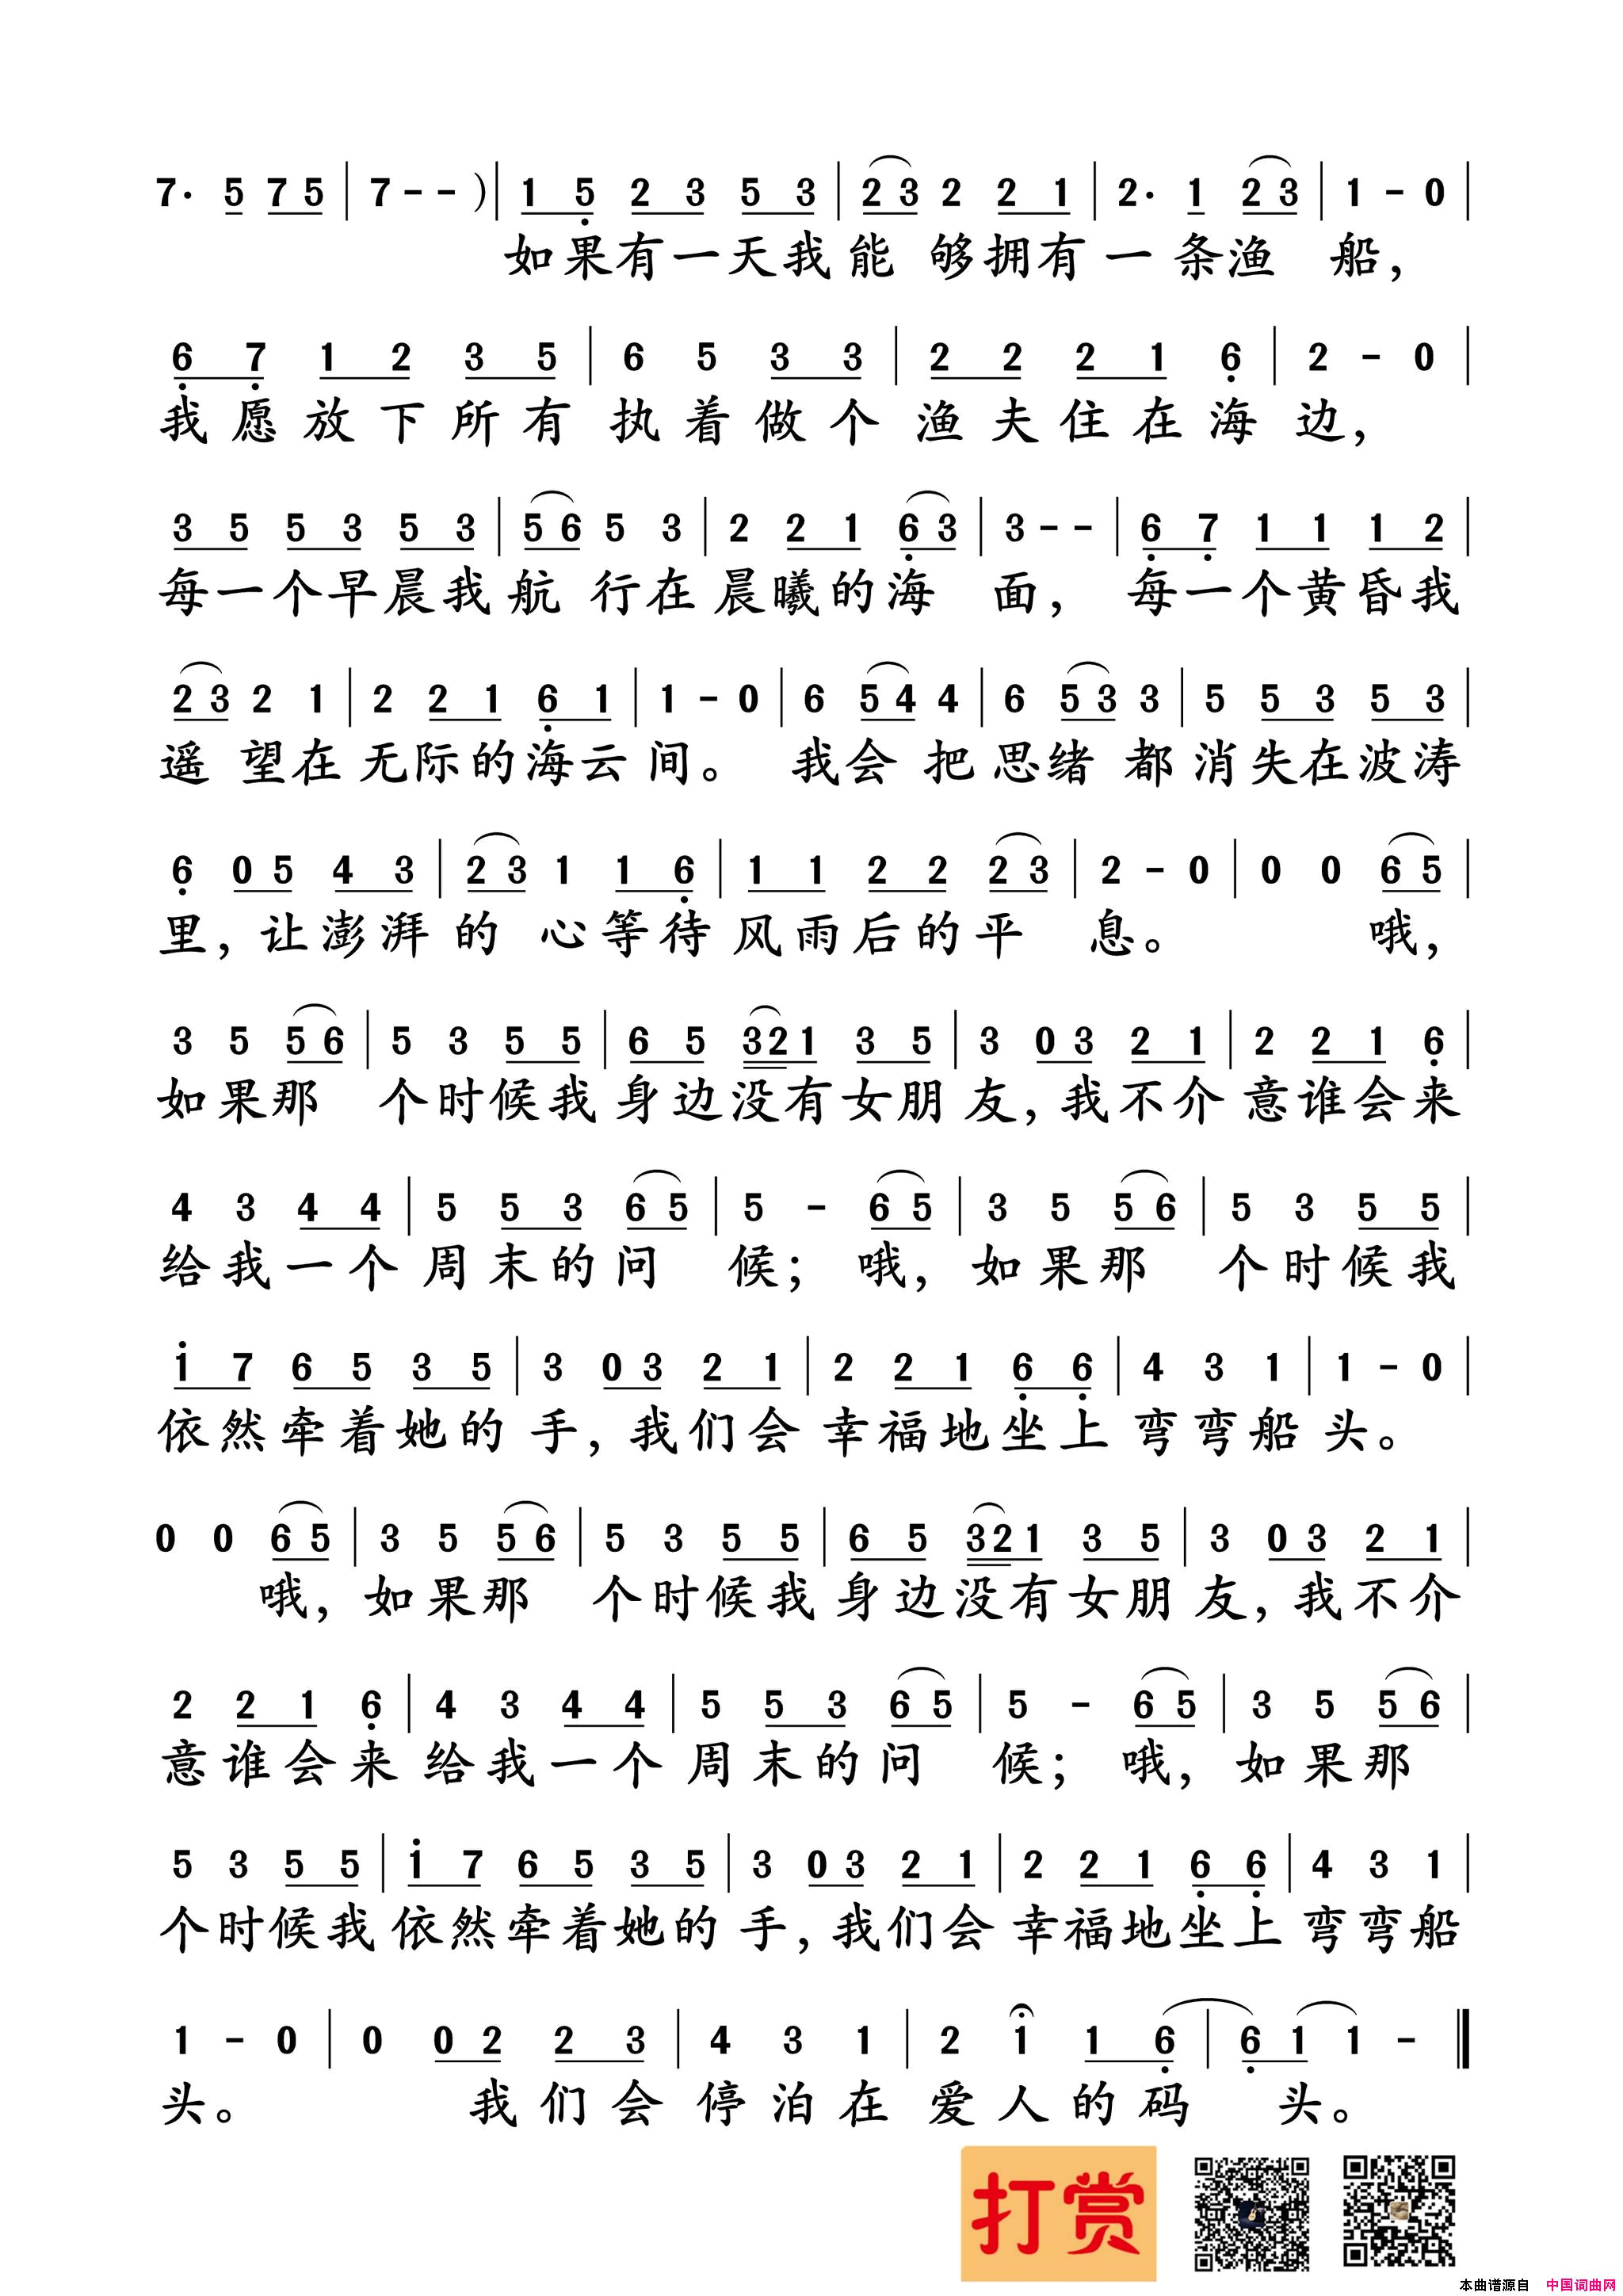 7· 5 7 5 | 7 - - ) | 1 5 2 3 5 3 | 2 3 2 2 1 | 2· 1 2 3 | 1 - 0 |
如果有一天我能 够拥有一条渔 船，
6 7 1 2 3 5 | 6 5 3 3 | 2 2 2 1 6 | 2 - 0 |
我愿放下所有执着做个渔夫住在海边，
3 5 5 3 5 3 | 5 6 5 3 | 2 2 1 6 3 | 3 - - | 6 7 1 1 1 2 |
每一个早晨我航 行在晨曦的海 面， 每一个黄昏我
2 3 2 1 | 2 2 1 6 1 | 1 - 0 | 6 5 4 4 | 6 5 3 3 | 5 5 3 5 3 |
遥 望在无际的海云间。 我会 把思绪 都消失在波涛
6 0 5 4 3 | 2 3 1 1 6 | 1 1 2 2 2 3 | 2 - 0 | 0 0 6 5 |
里，让澎湃的 心等待风雨后的平 息。 哦，
3 5 5 6 | 5 3 5 5 | 6 5 3 2 1 3 5 | 3 0 3 2 1 | 2 2 1 6 |
如果那 个时候我身边没有女朋友，我不介意谁会来
4 3 4 4 | 5 5 3 6 5 | 5 - 6 5 | 3 5 5 6 | 5 3 5 5 |
给我一个周末的问 候； 哦，如果那 个时候我
i 7 6 5 3 5 | 3 0 3 2 1 | 2 2 1 6 6 | 4 3 1 | 1 - 0 |
依然牵着她的手，我们会幸福地坐上弯弯船头。
0 0 6 5 | 3 5 5 6 | 5 3 5 5 | 6 5 3 2 1 3 5 | 3 0 3 2 1 |
哦，如果那 个时候我身边没有女朋友，我不介
2 2 1 6 | 4 3 4 4 | 5 5 3 6 5 | 5 - 6 5 | 3 5 5 6 |
意谁会来给我一个周末的问 候； 哦，如果那
5 3 5 5 | i 7 6 5 3 5 | 3 0 3 2 1 | 2 2 1 6 6 | 4 3 1 |
个时候我依然牵着她的手，我们会幸福地坐上弯弯船
1 - 0 | 0 0 2 2 3 | 4 3 1 | 2 1 1 6 | 6 1 1 - ‖
头。 我们会停泊在爱人的码 头。
打赏
本曲谱源自 中国词曲网